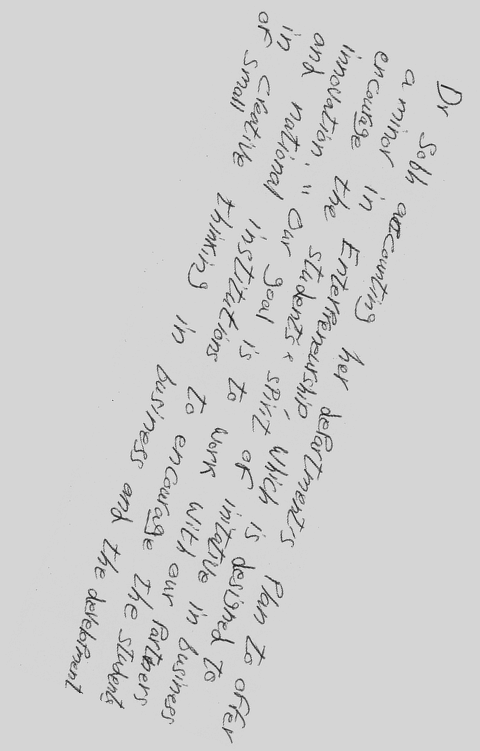 Dr Sobh accounting her department's Plan to offer
a minor in Enterpreneurship, which is designed to
encourage the students' spirit of initative in business
innovation. " Our goal is to work with our Partners
and national institutions to encourage the students
in creative thinking in business and the develepment
of small